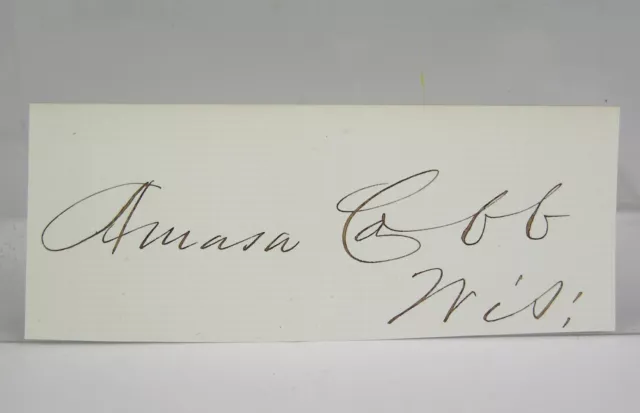 Amasa Cobb
Wis;